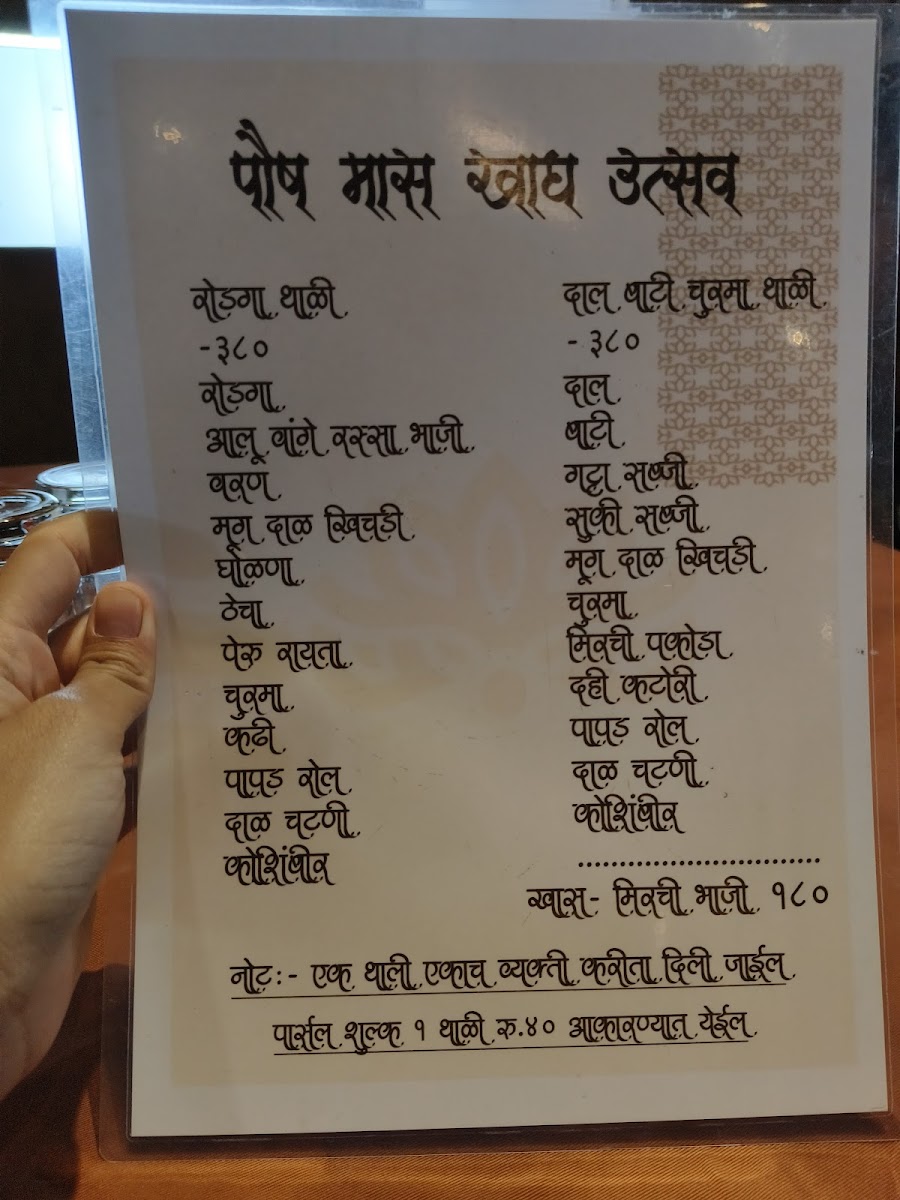 पौष मास खाद्य उत्सव
रोडगा थाळी
-३८०
रोडगा
आलू वांगे रस्सा भाजी
वरण
मूग दाळ खिचडी
घोळणा
ठेचा
पेरु रायता
चुरमा
कढी
पापड रोल
दाळ चटणी
कोशिंबीर
दाल बाटी चुरमा थाळी
- ३८०
दाल
बाटी
गट्टा सब्जी
सुकी सब्जी
मूग दाळ खिचडी
चुरमा
मिरची पकोडा
दही कटोरी
पापड रोल
दाळ चटणी
कोशिंबीर
खास- मिरची भाजी १८०
नोट:- एक थाली एकाच व्यक्ती करीता दिली जाईल
पार्सल शुल्क १ थाळी रु.४० आकारण्यात येईल